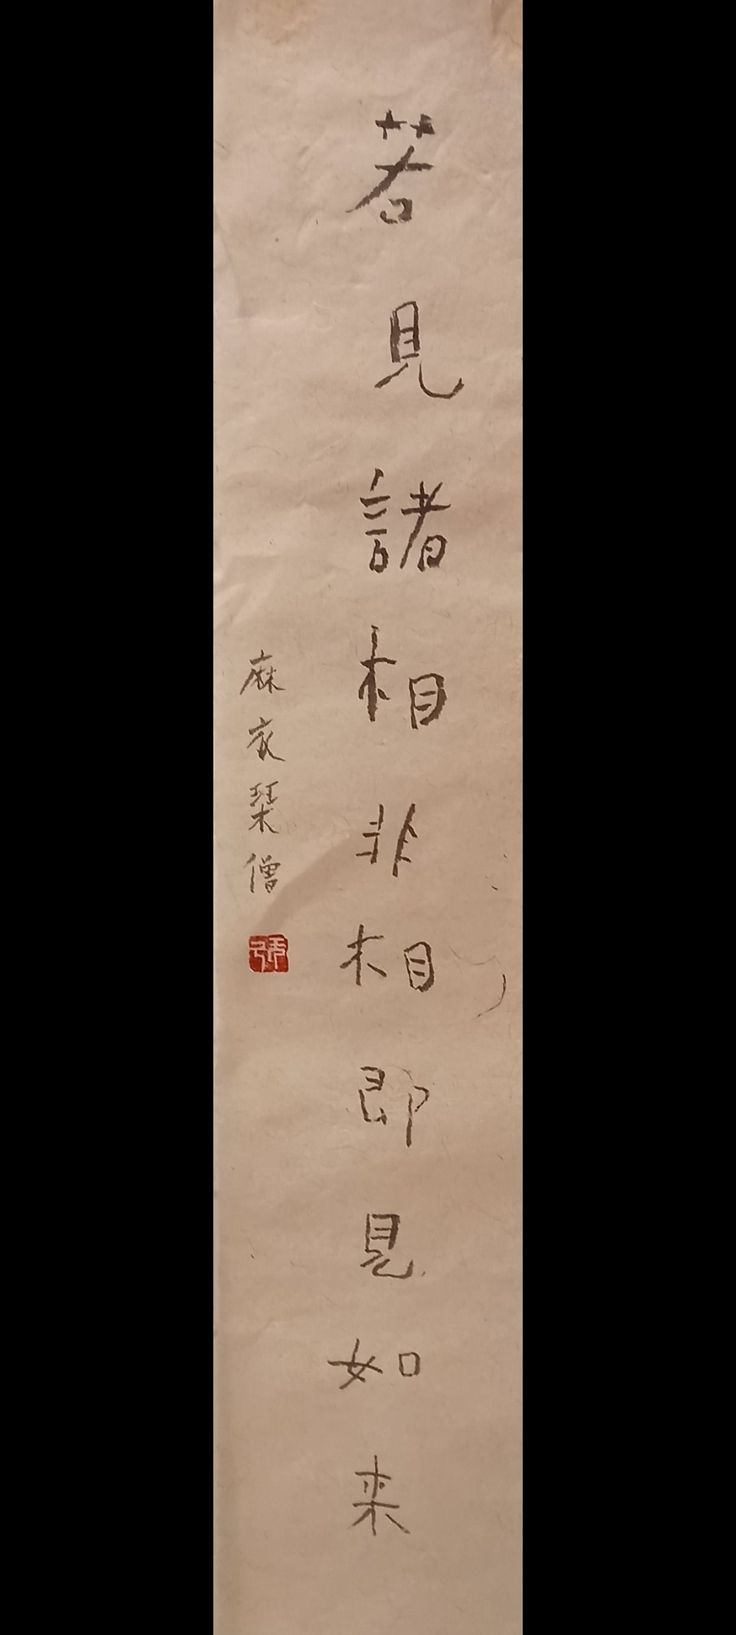 若見諸相非相即見如来
麻衣琹僧
張